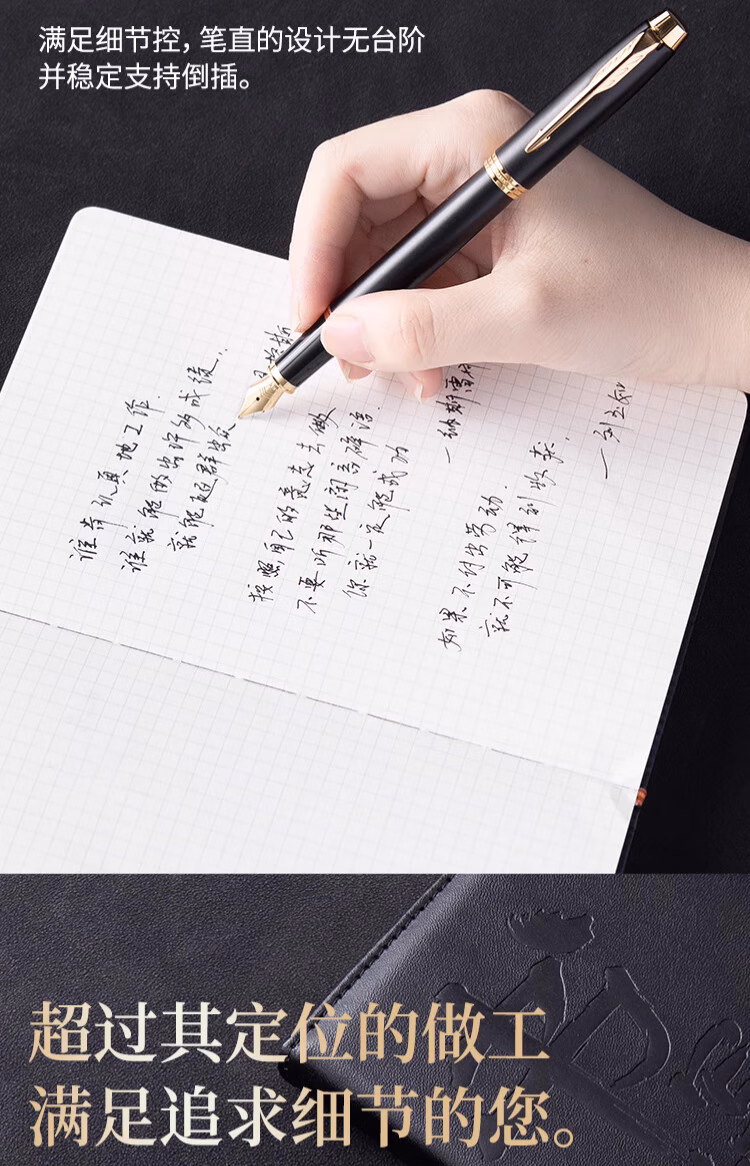 满足细节控，笔直的设计无台阶
并稳定支持倒插。
谁肯认真地工作.
谁就能做出许多成绩.
就能超群出众
按照自己的意志去做
不要听那些闲言碎语.
你就一定能成功
一纳斯雷丹
如果不付出劳动.
就不可能得到收获.
超过其定位的做工
满足追求细节的您。